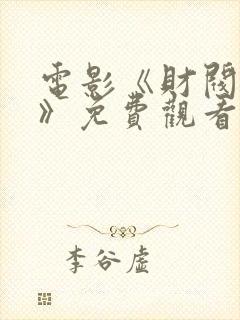 電影《財閥
》免費觀看
李谷虛